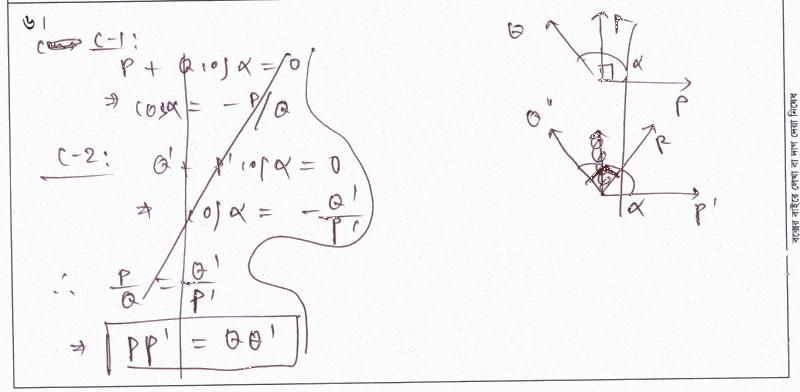 ৬।
C-1:
P + Q cos α = 0
⇒ cos α = - P/Q
C-2: Q' + P' cos α = 0
⇒ cos α = - Q'/P'
∴ P/Q = Q'/P'
⇒ PP' = QQ'
Q R α P
Q' R α P'
বক্সের বাইরে লেখা বা দাগ দেয়া নিষেধ